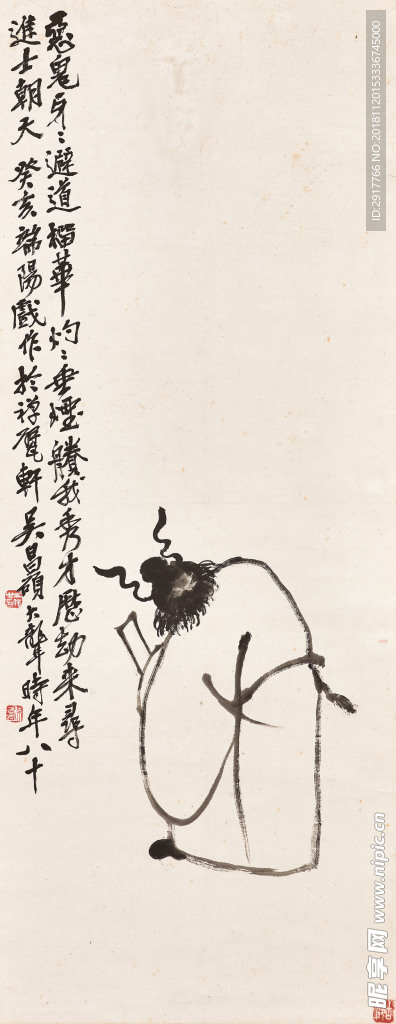 惡鬼牙〻避道榴華灼〻垂煙賸我秀才歷劫来尋
進士朝天 癸亥端陽戲作於禅甓軒 吴昌碩大聾時年八十
ID:2917766 NO:20181120153336745000
昵享网 www.nipic.cn